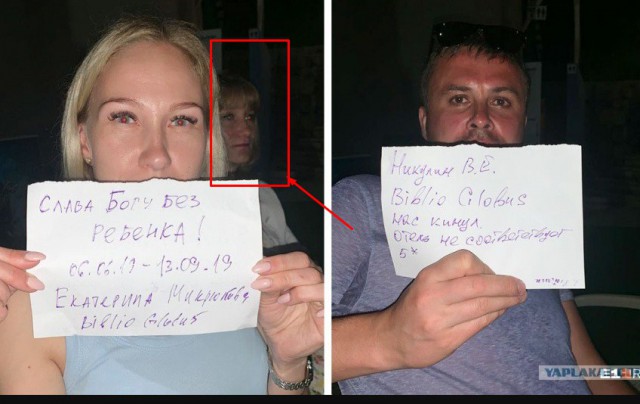 Слава Богу без
ребенка!
06.06.19 – 13.09.19
Екатерина
Biblio Globus
Никулин В.Е.
Biblio Globus
нас кинул.
Отель не соответствует
5*
YAPLAKAL
E1.RU